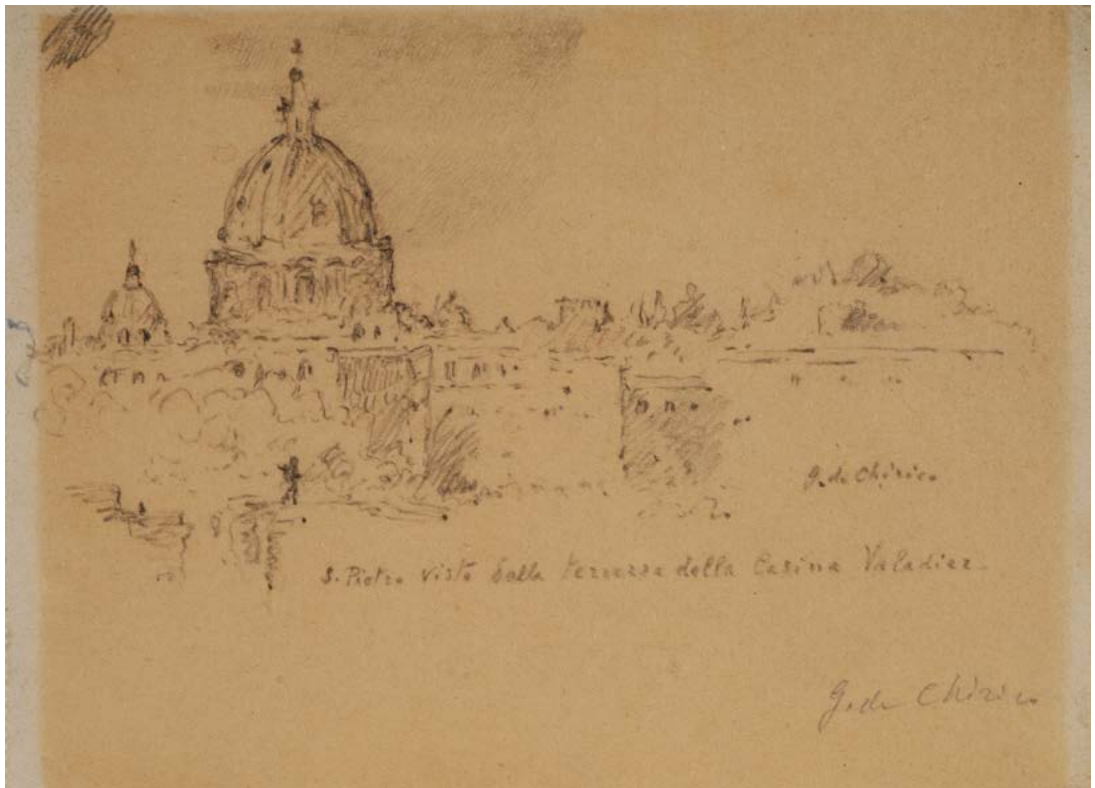 G. de Chirico
S. Pietro visto dalla terrazza della Casina Valadier
G. de Chirico